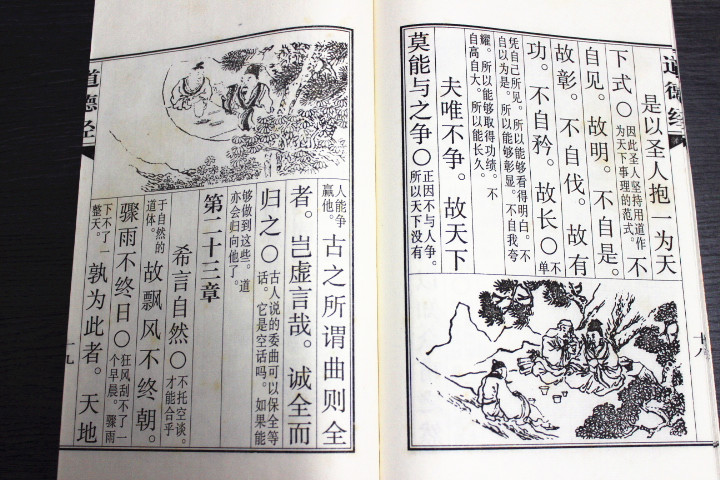 道德经
是以圣人抱一为天
下式〇
因此圣人坚持用道作
为天下事理的范式。
不
自见。故明。不自是。
故彰。不自伐。故有
功。不自矜。故长〇
不
单
凭自己所见。所以能够看得明白。不
自以为是。所以能够彰显。不自我夸
耀。所以能够取得功绩。不
自高自大。所以能长久。
夫唯不争。故天下
莫能与之争〇
正因不与人争。
所以天下没有
十八
人能争
赢他。
古之所谓曲则全
者。岂虚言哉。诚全而
归之〇
古人说的委曲可以保全等
话。它是空话吗。如果能
够做到这些。道
亦会归向他了。
第二十三章
希言自然〇
不托空谈。
才能合乎
于自然的
道体。
故飘风不终朝。
骤雨不终日〇
狂风刮不了一
个早晨。骤雨
下不了一
整天。
孰为此者。天地
道德经
十九